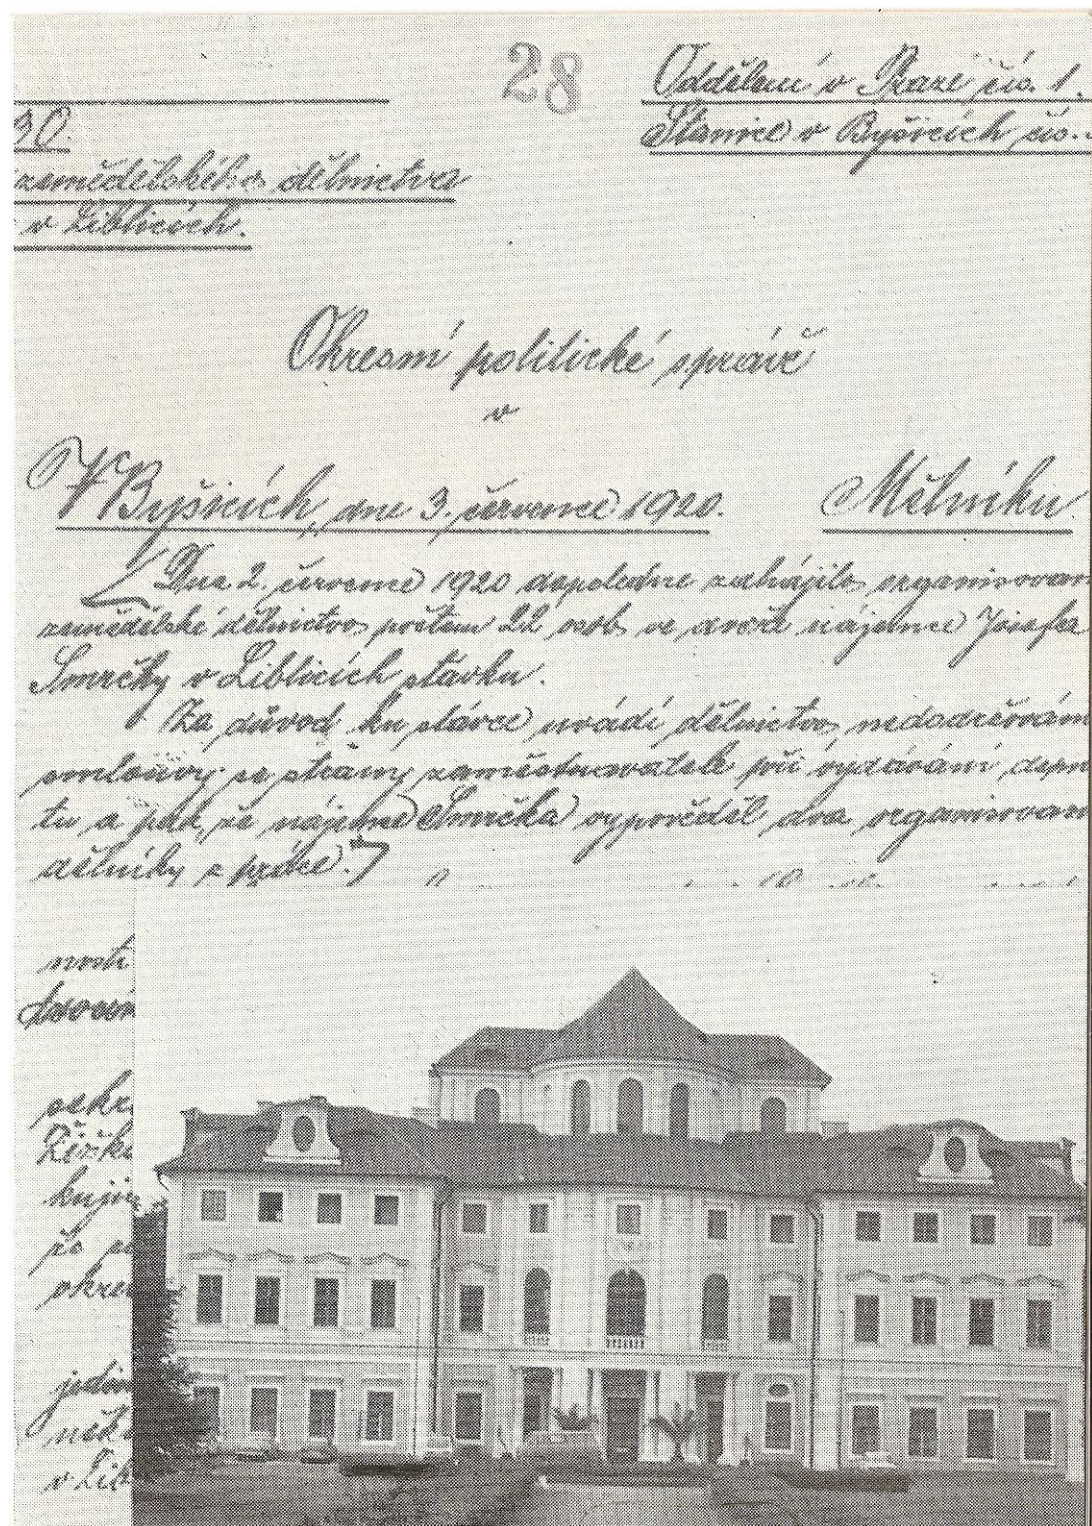 28
Oddělení v Praze čís. 1.
Stanice v Byšicích čís.
30.
zemědělského dělnictva
v Liblicích.
Okresní politické správě
v
V Byšicích, dne 3. července 1920.
Mělníku.
Dne 2. července 1920 dopoledne zahájilo organisovan
zemědělské dělnictvo počtem 22 osob ve dvoře nájemce Josefa
Smrčky v Liblicích stávku.
Za důvod ku stávce uvádí dělnictvo nedodržován
smlouvy se strany zaměstnavatele při vydávání depu
tu a pak, že nájemce Smrčka vypověděl dva organisovan
dělníky z práce.
nosti
sekre
kujíc
že
okres
jedin
v Lib